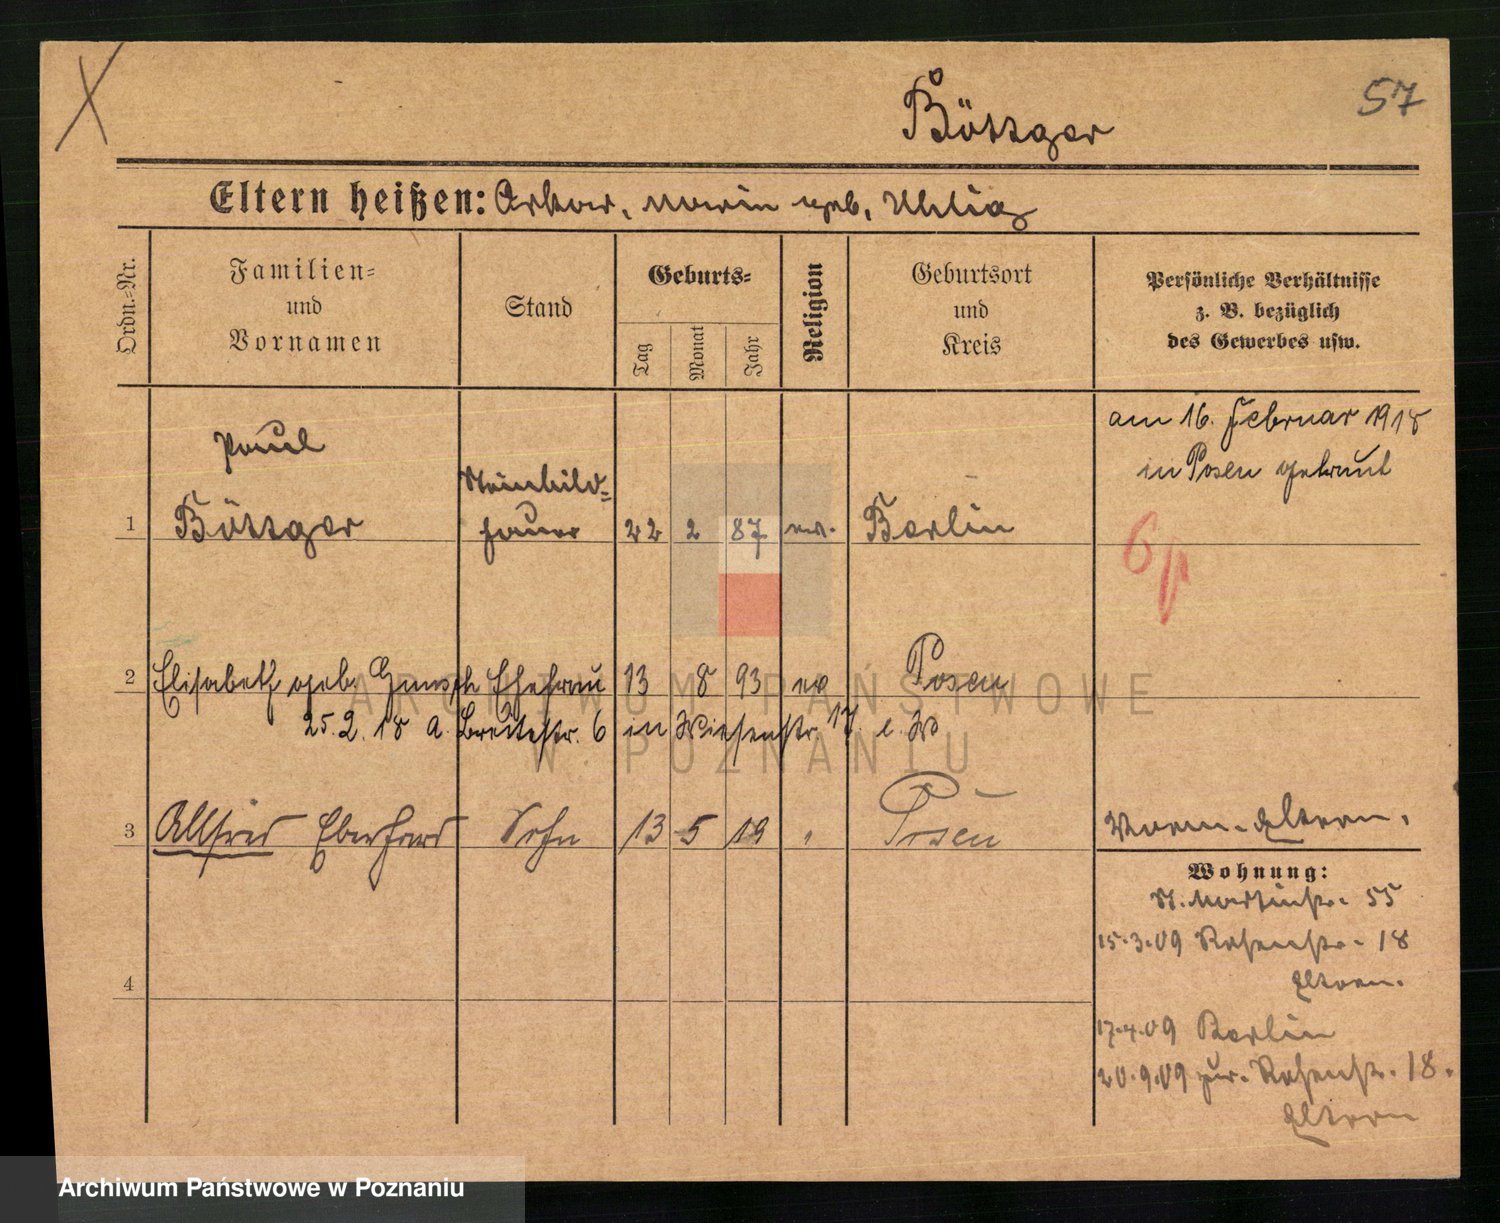 57
Böttger
Eltern heißen: Oskar, Marie geb. Uhlig
Ordn.-Nr.
Familien-
und
Vornamen
Stand
Geburts-
Tag
Monat
Jahr
Religion
Geburtsort
und
Kreis
Persönliche Verhältnisse
z. B. bezüglich
des Gewerbes usw.
am 16. Februar 1918
in Posen getraut
1
Paul
Böttger
Steinbild-
hauer
22 2 87 ev. Berlin
2 Elisabeth geb. Ehefrau 13 8 93 ev Posen
25.2.18 a. Breitestr. 6 in Wiesenstr. 17
3 Alfred Eberhard Sohn 13 5 19 " Posen
Vorm. Eltern.
Wohnung:
St. Martinstr. 55
15.3.09 Rosenstr. 18
Eltern.
4
17.4.09 Berlin
20.9.09 zur. Rosenstr. 18.
Eltern
ARCHIWUM PAŃSTWOWE
W POZNANIU
Archiwum Państwowe w Poznaniu